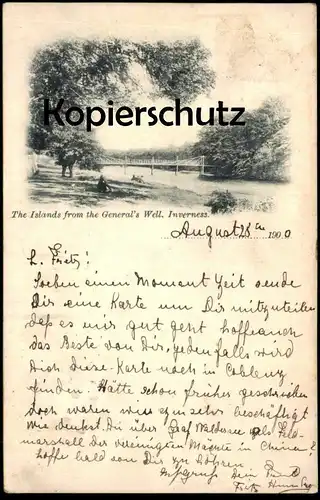 Kopierschutz
The Islands from the General's Well, Inverness.
August 28th 1900
L. Fritz!
Soeben einen Moment Zeit sende
Dir eine Karte um Dir mitzuteilen
daß es mir gut geht hoffe auch
das Beste von Dir, jedenfalls wird
Dich diese Karte noch in Coblenz
finden. Hätte schon früher geschrieben
doch waren wir so beschäftigt
wie denkst Du über Graf Waldersee als Feld-
marshall der vereinigten Mächte in China?
hoffe bald von Dir zu hören.
Dein
Fritz